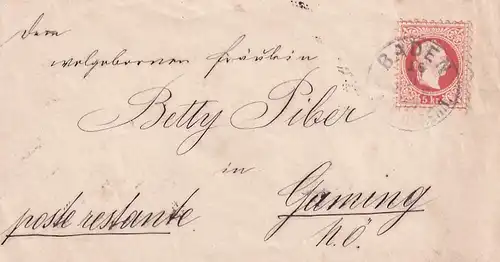 Dem
wolgebornen Fräulein
Betty Piber
in
Gaming
poste restante.
N.Ö.
BADEN
5 kr